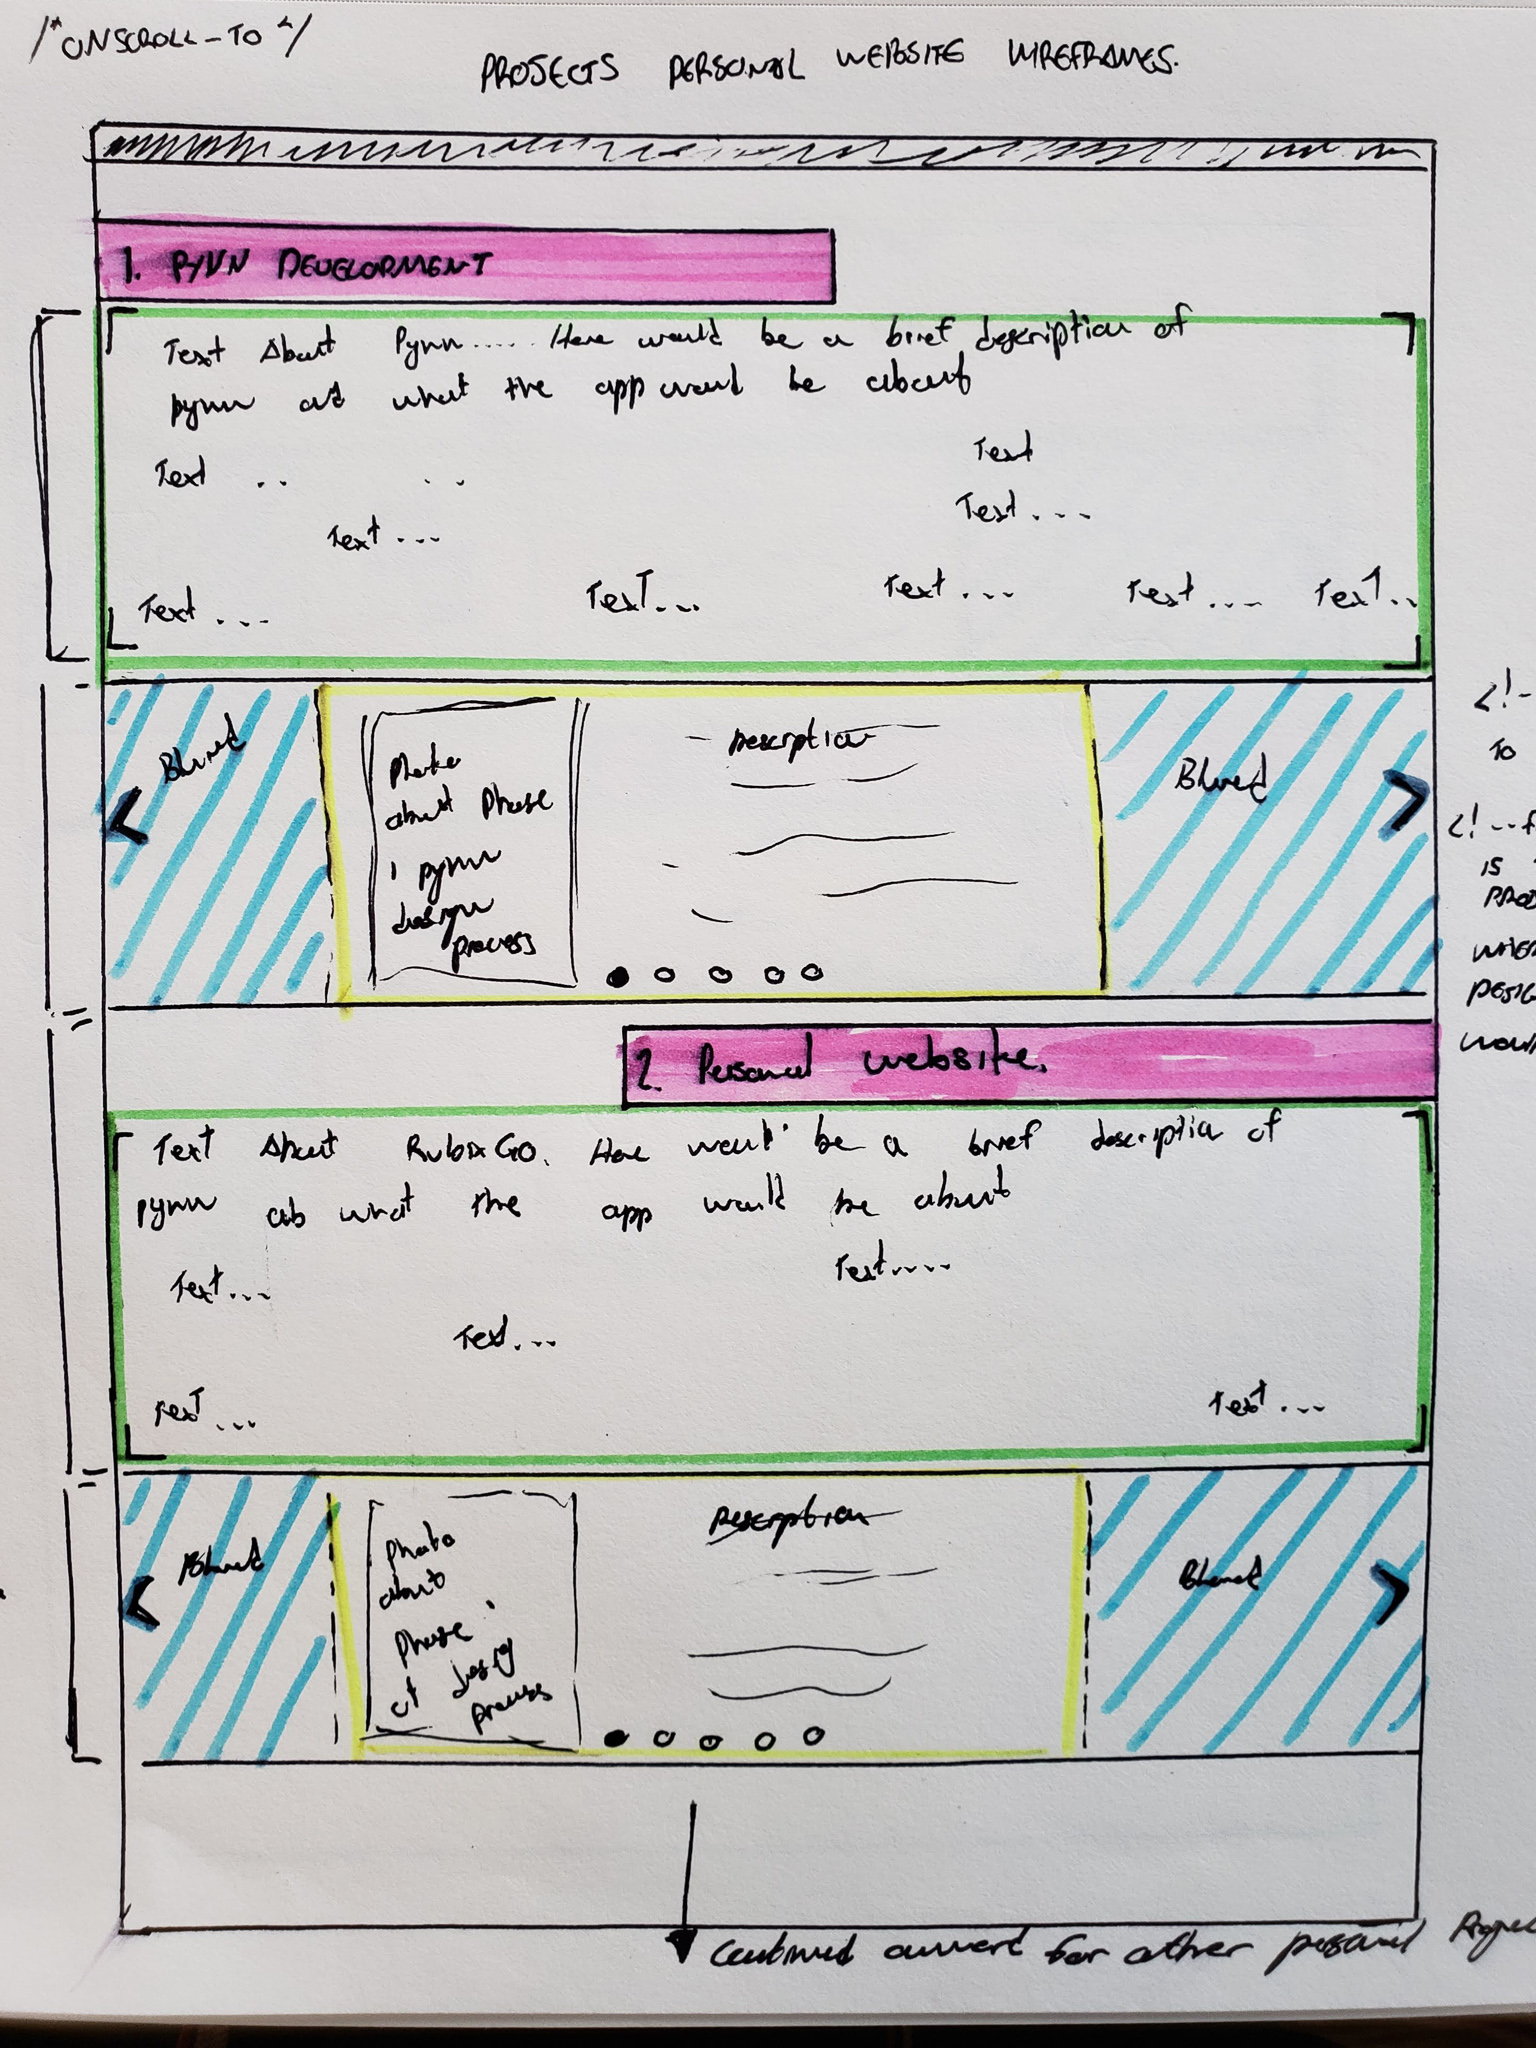 /* ONSCROLL-TO */
PROJECTS PERSONAL WEBSITE WIREFRAMES.
1. PYNN DEVELOPMENT
Text About Pynn.... Here would be a brief description of
pynn what the app would be about
Text .. ..
Text
Text ...
Text ...
Text ...
Text ...
Text ...
Text ....
Text ..
Blurred
Photo
about Phase
1 pynn
design
process
Description
Blurred
<!-
TO
<!--
IS
2. Personal website.
Text About RubixGO. Here would be a brief description of
pynn what the app would be about
Text ...
Text .....
Text ...
Text ...
Text ...
Blurred
photo
about
phase
of design
process
Description
Blurred
for other personal